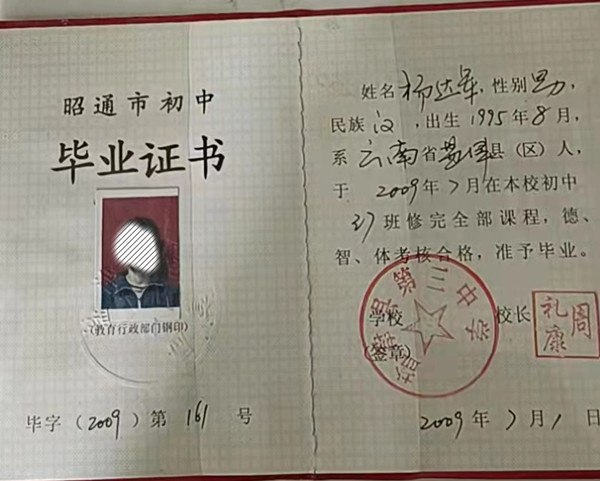 昭通市初中
毕业证书
(教育行政部门钢印)
毕字(2009)第 161 号
姓名 杨达军,性别 男,
民族 汉,出生 1995年8月,
系 云南省 县(区)人,
于 2009年7月在本校初中
37班修完全部课程,德、
智、体考核合格,准予毕业。
县第三中学
学校
(签章)
校长
周礼康
2009年7月1日